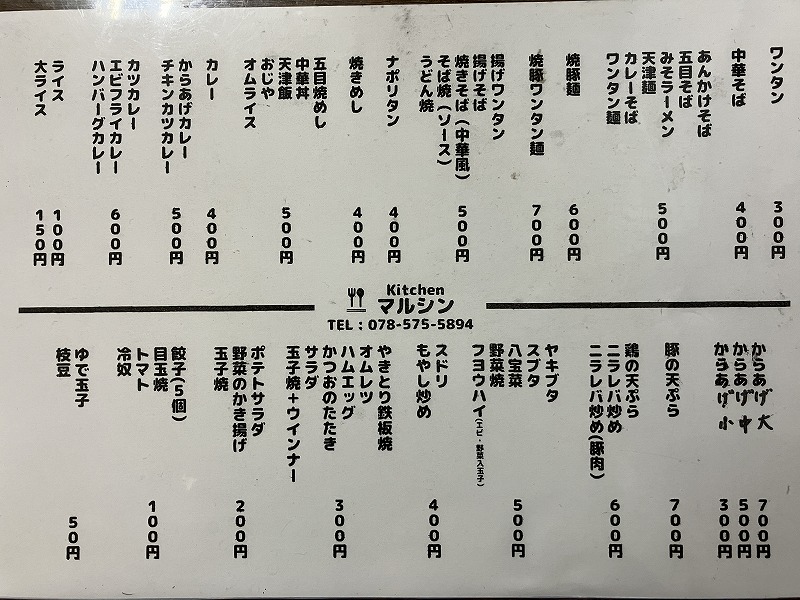 ワンタン 300円
中華そば 400円
あんかけそば
五目そば
みそラーメン
天津麺
カレーそば
ワンタン麺
500円
焼豚麺 600円
焼豚ワンタン麺 700円
揚げワンタン
揚げそば
焼きそば(中華風)
そば焼(ソース)
うどん焼
500円
ナポリタン 400円
焼きめし 400円
五目焼めし
中華丼
天津飯
おじや
オムライス
500円
カレー 400円
からあげカレー
チキンカツカレー
500円
カツカレー
エビフライカレー
ハンバーグカレー
600円
ライス 100円
大ライス 150円
Kitchen
マルシン
TEL:078-575-5894
からあげ 大 700円
からあげ 中 500円
からあげ 小 300円
豚の天ぷら 700円
鶏の天ぷら
ニラレバ炒め
ニラレバ炒め(豚肉)
600円
ヤキブタ
スブタ
八宝菜
野菜焼
フヨウハイ(エビ・野菜入玉子)
500円
スドリ
もやし炒め
400円
やきとり鉄板焼
オムレツ
ハムエッグ
かつおのたたき
サラダ
玉子焼+ウインナー
300円
ポテトサラダ
野菜のかき揚げ
玉子焼
200円
餃子(5個)
目玉焼
トマト
冷奴
100円
ゆで玉子
枝豆
50円